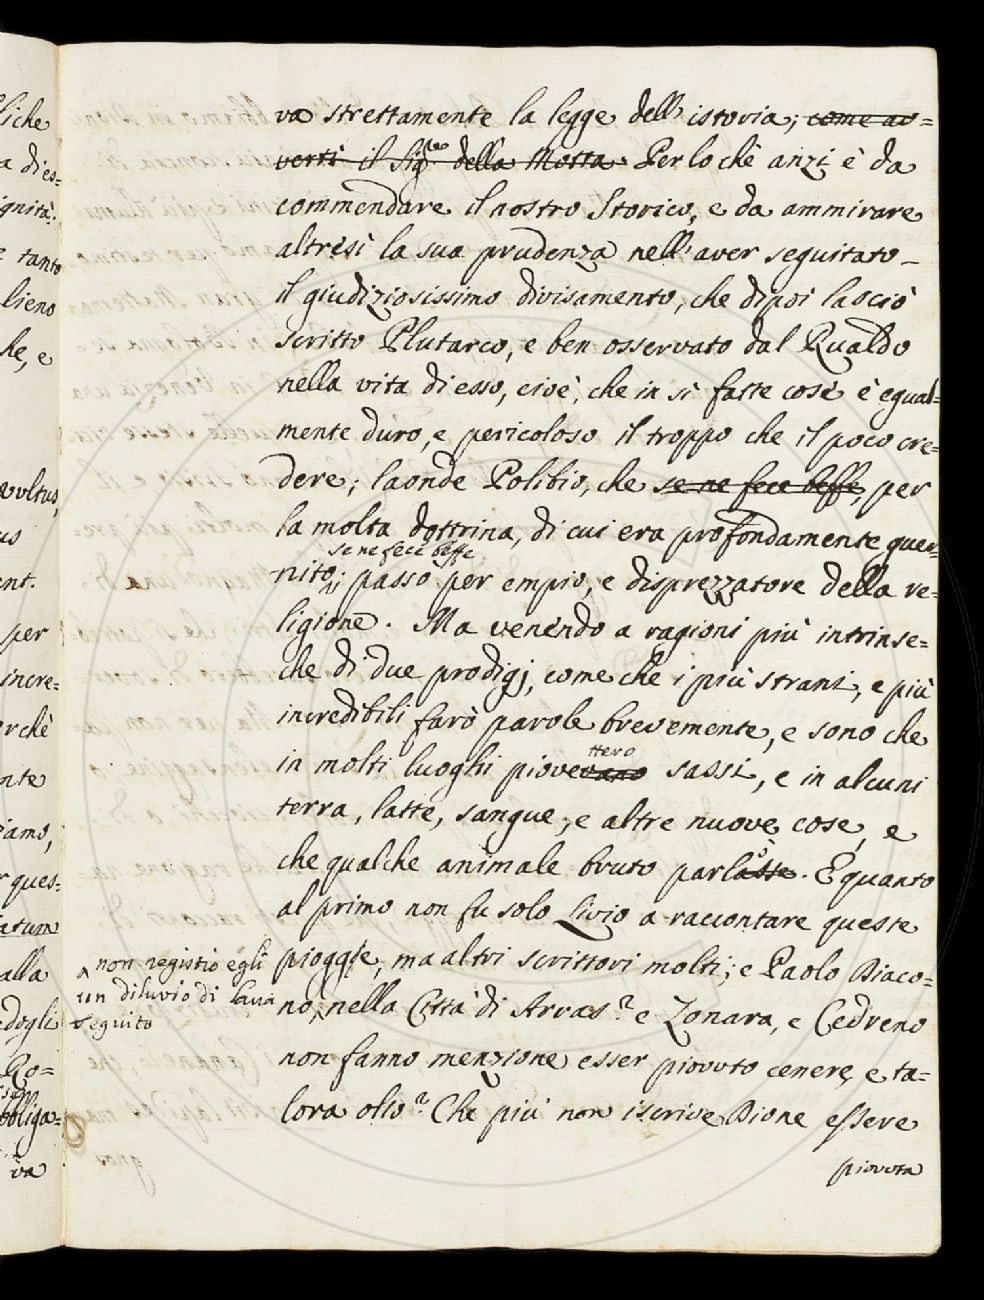 va strettamente la legge dell' istoria; come av=
verti il Sig.re della Motta. Perlochè anzi è da
commendare il nostro Storico, e da ammirare
altresì la sua prudenza nell' aver seguitato
il giudiziosissimo divisamento, che dipoi lasciò
scritto Plutarco, e ben osservato dal Rualdo
nella vita di esso, cioè, che in sì fatte cose è egual=
mente duro, e pericoloso il troppo che il poco cre=
dere; laonde Polibio, che se ne fece beffe, per
la molta dottrina, di cui era profondamente guer=
se ne fece beffe
nito; passo per empio, e disprezzatore della re=
ligione. Ma venendo a ragioni più intrinse=
che di due prodigj, come che i più strani, e più
incredibili farò parole brevemente, e sono che
ttero
in molti luoghi piovevano sassi, e in alcuni
terra, latte, sangue, e altre nuove cose, e
che qualche animale bruto parlasse. E quanto
ò
al primo non fu solo Livio a raccontare queste
pioggie, ma altri scrittori molti; e Paolo Diaco=
no, nella Città di Arras? e Zonara, e Cedreno
non registiò egli
un diluvio di
seguito
non fanno menzione esser piovuto cenere, e ta=
lora olio? Che più non iscrive Dione essere
piovuta
liche
a dies=
gnità:
e tanto
lieno
he, e
vultus,
us
ent.
per
incre=
rchè
nte
iamo,
r ques=
atum
alla
dogli
Ro=
bbliga=
va